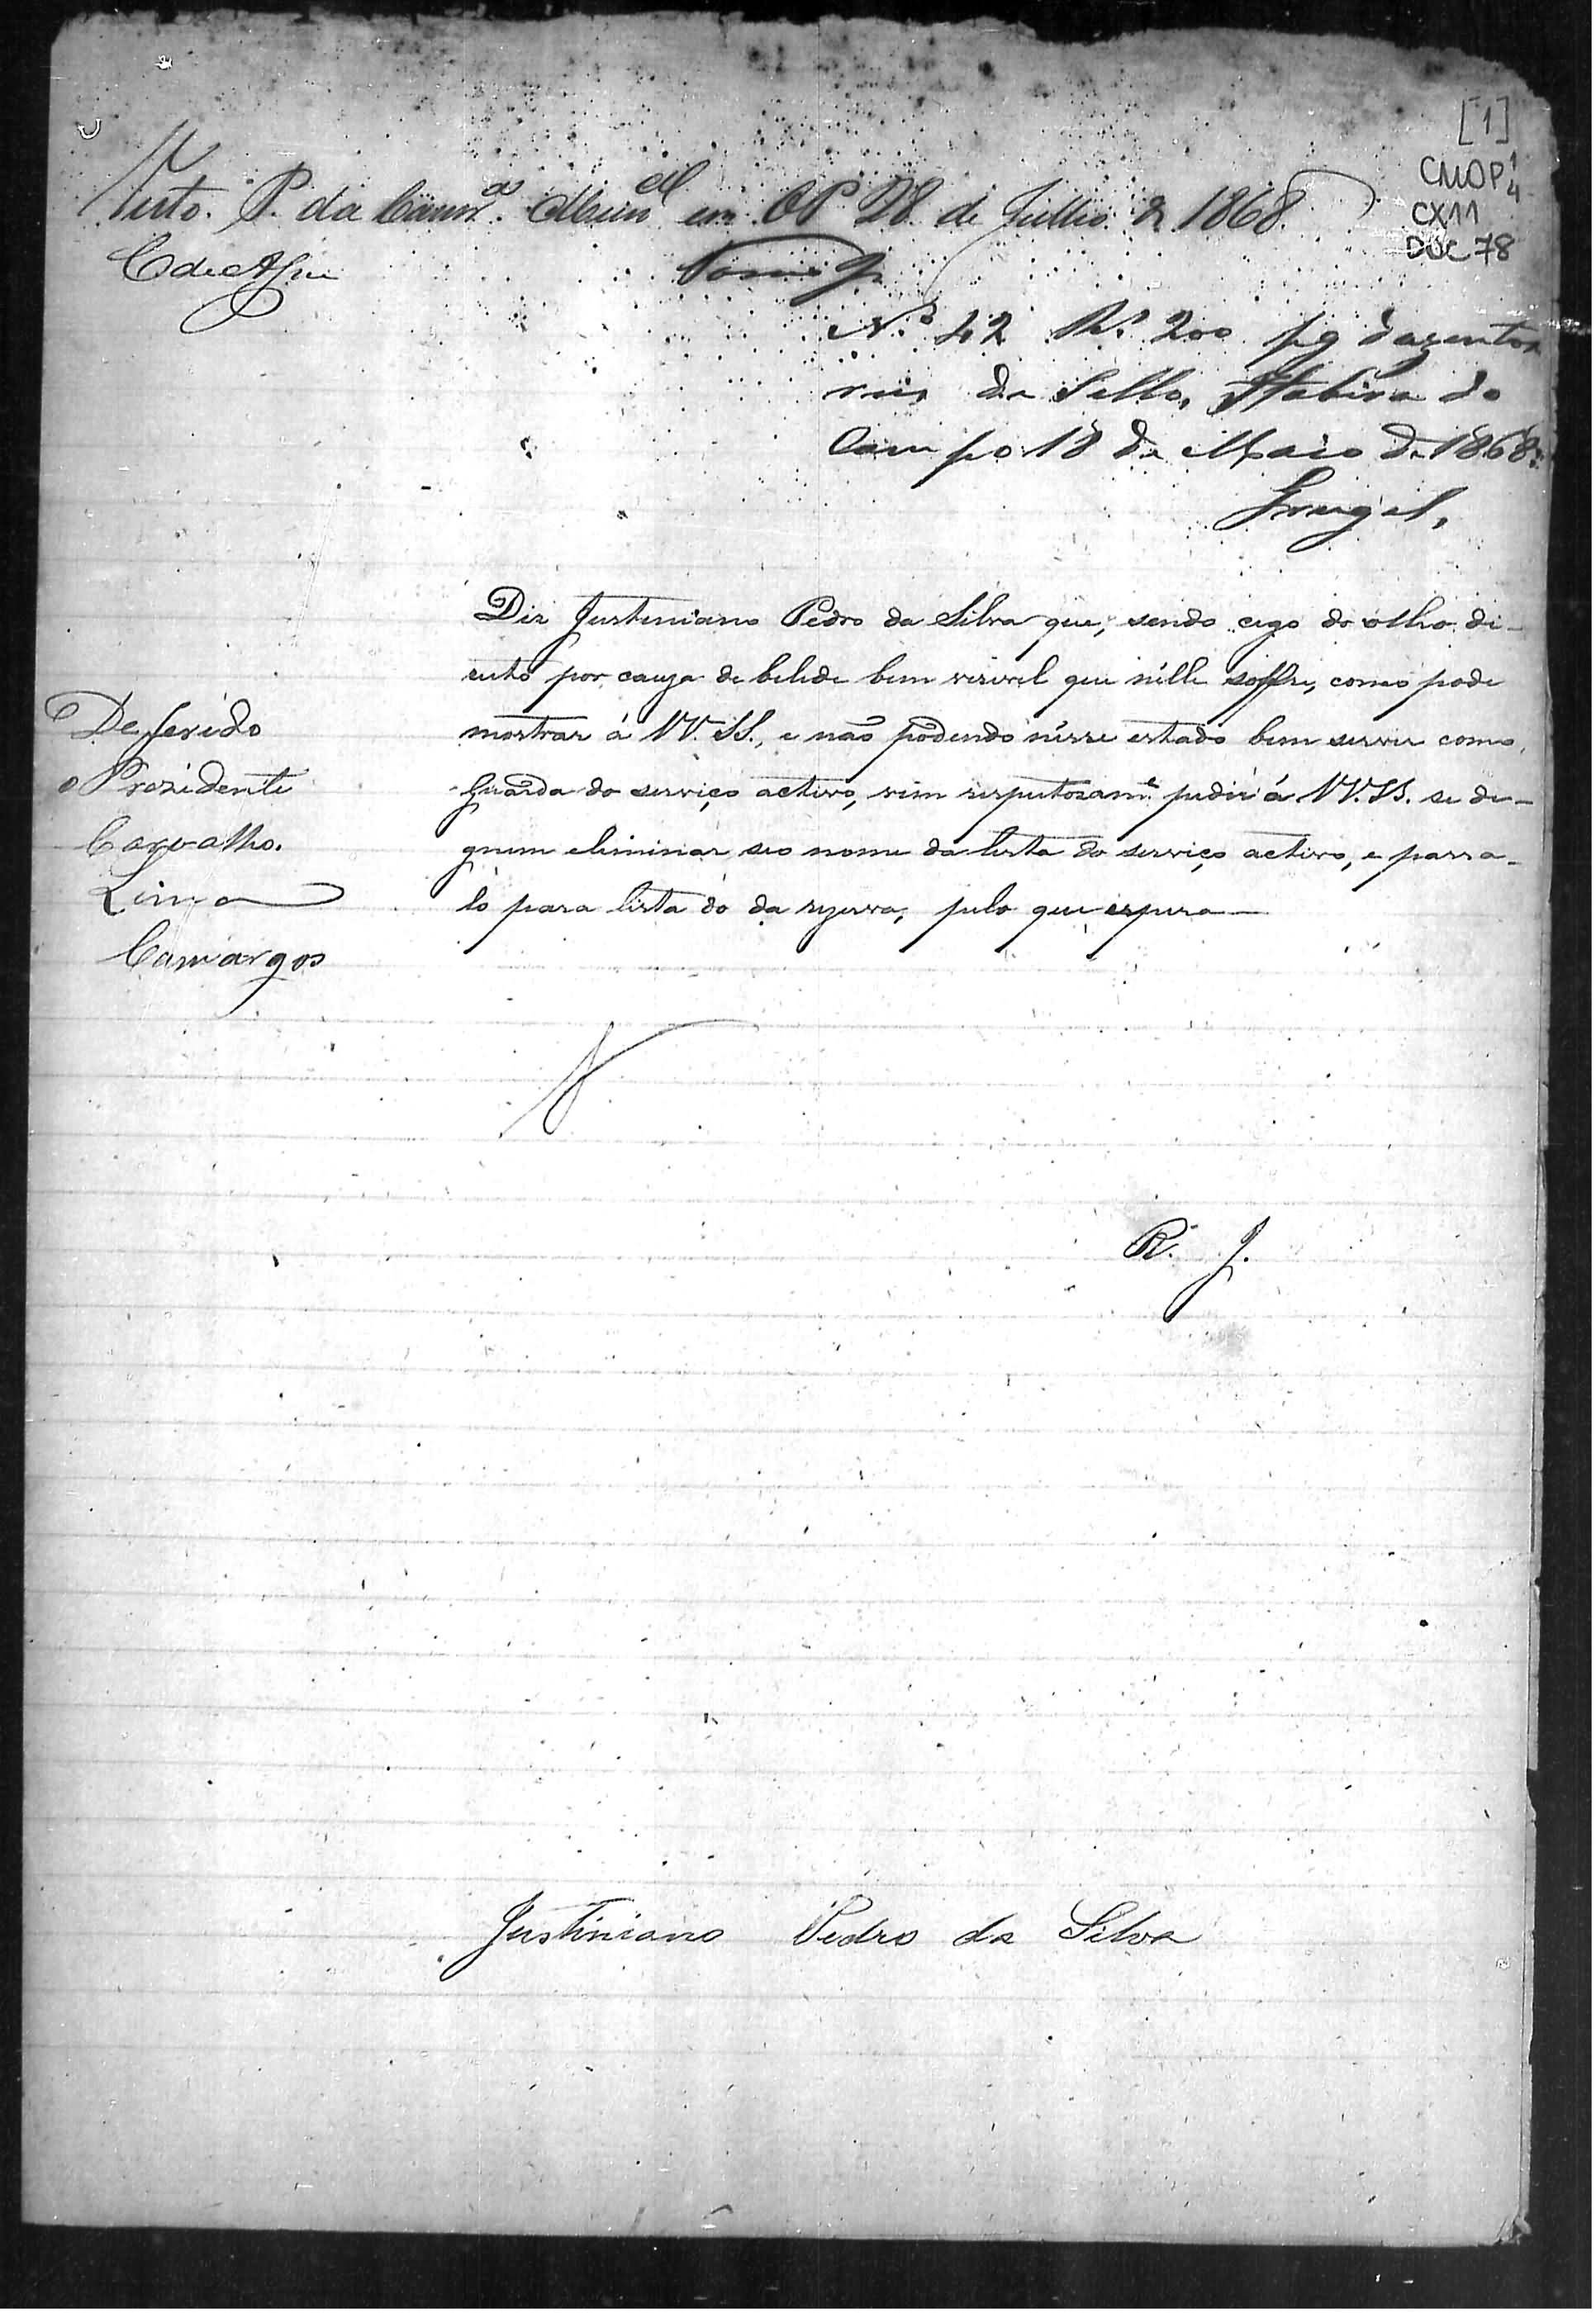 [1]
CMOP 1
4
CX11
DOC 78
Visto. P. da Camrª. Munᵃˡ em OP 28 de Julho de 1868.
Nº 42 Rs 200 pg duzentos
reis de Sello, Itabira do
Campo 18 de Maio de 1868.
Gurgel,
Diz Justiniano Pedro da Silva que, sendo cego do olho di-
reito por cauza de belide bem vizivel que n'elle soffre, como pode
mostrar á VV. SS., e não podendo n'esse estado bem servir como
guarda do serviço activo, vem respeitozamᵉ pedir á VV. SS. se di-
gnem eliminar seo nome da lista do serviço activo, e passa-
lo para lista do da rezerva, pelo que espera
Deferido
o Prezidente
Carvalho.
Lima
Camargos
R. J.
Justiniano Pedro da Silva